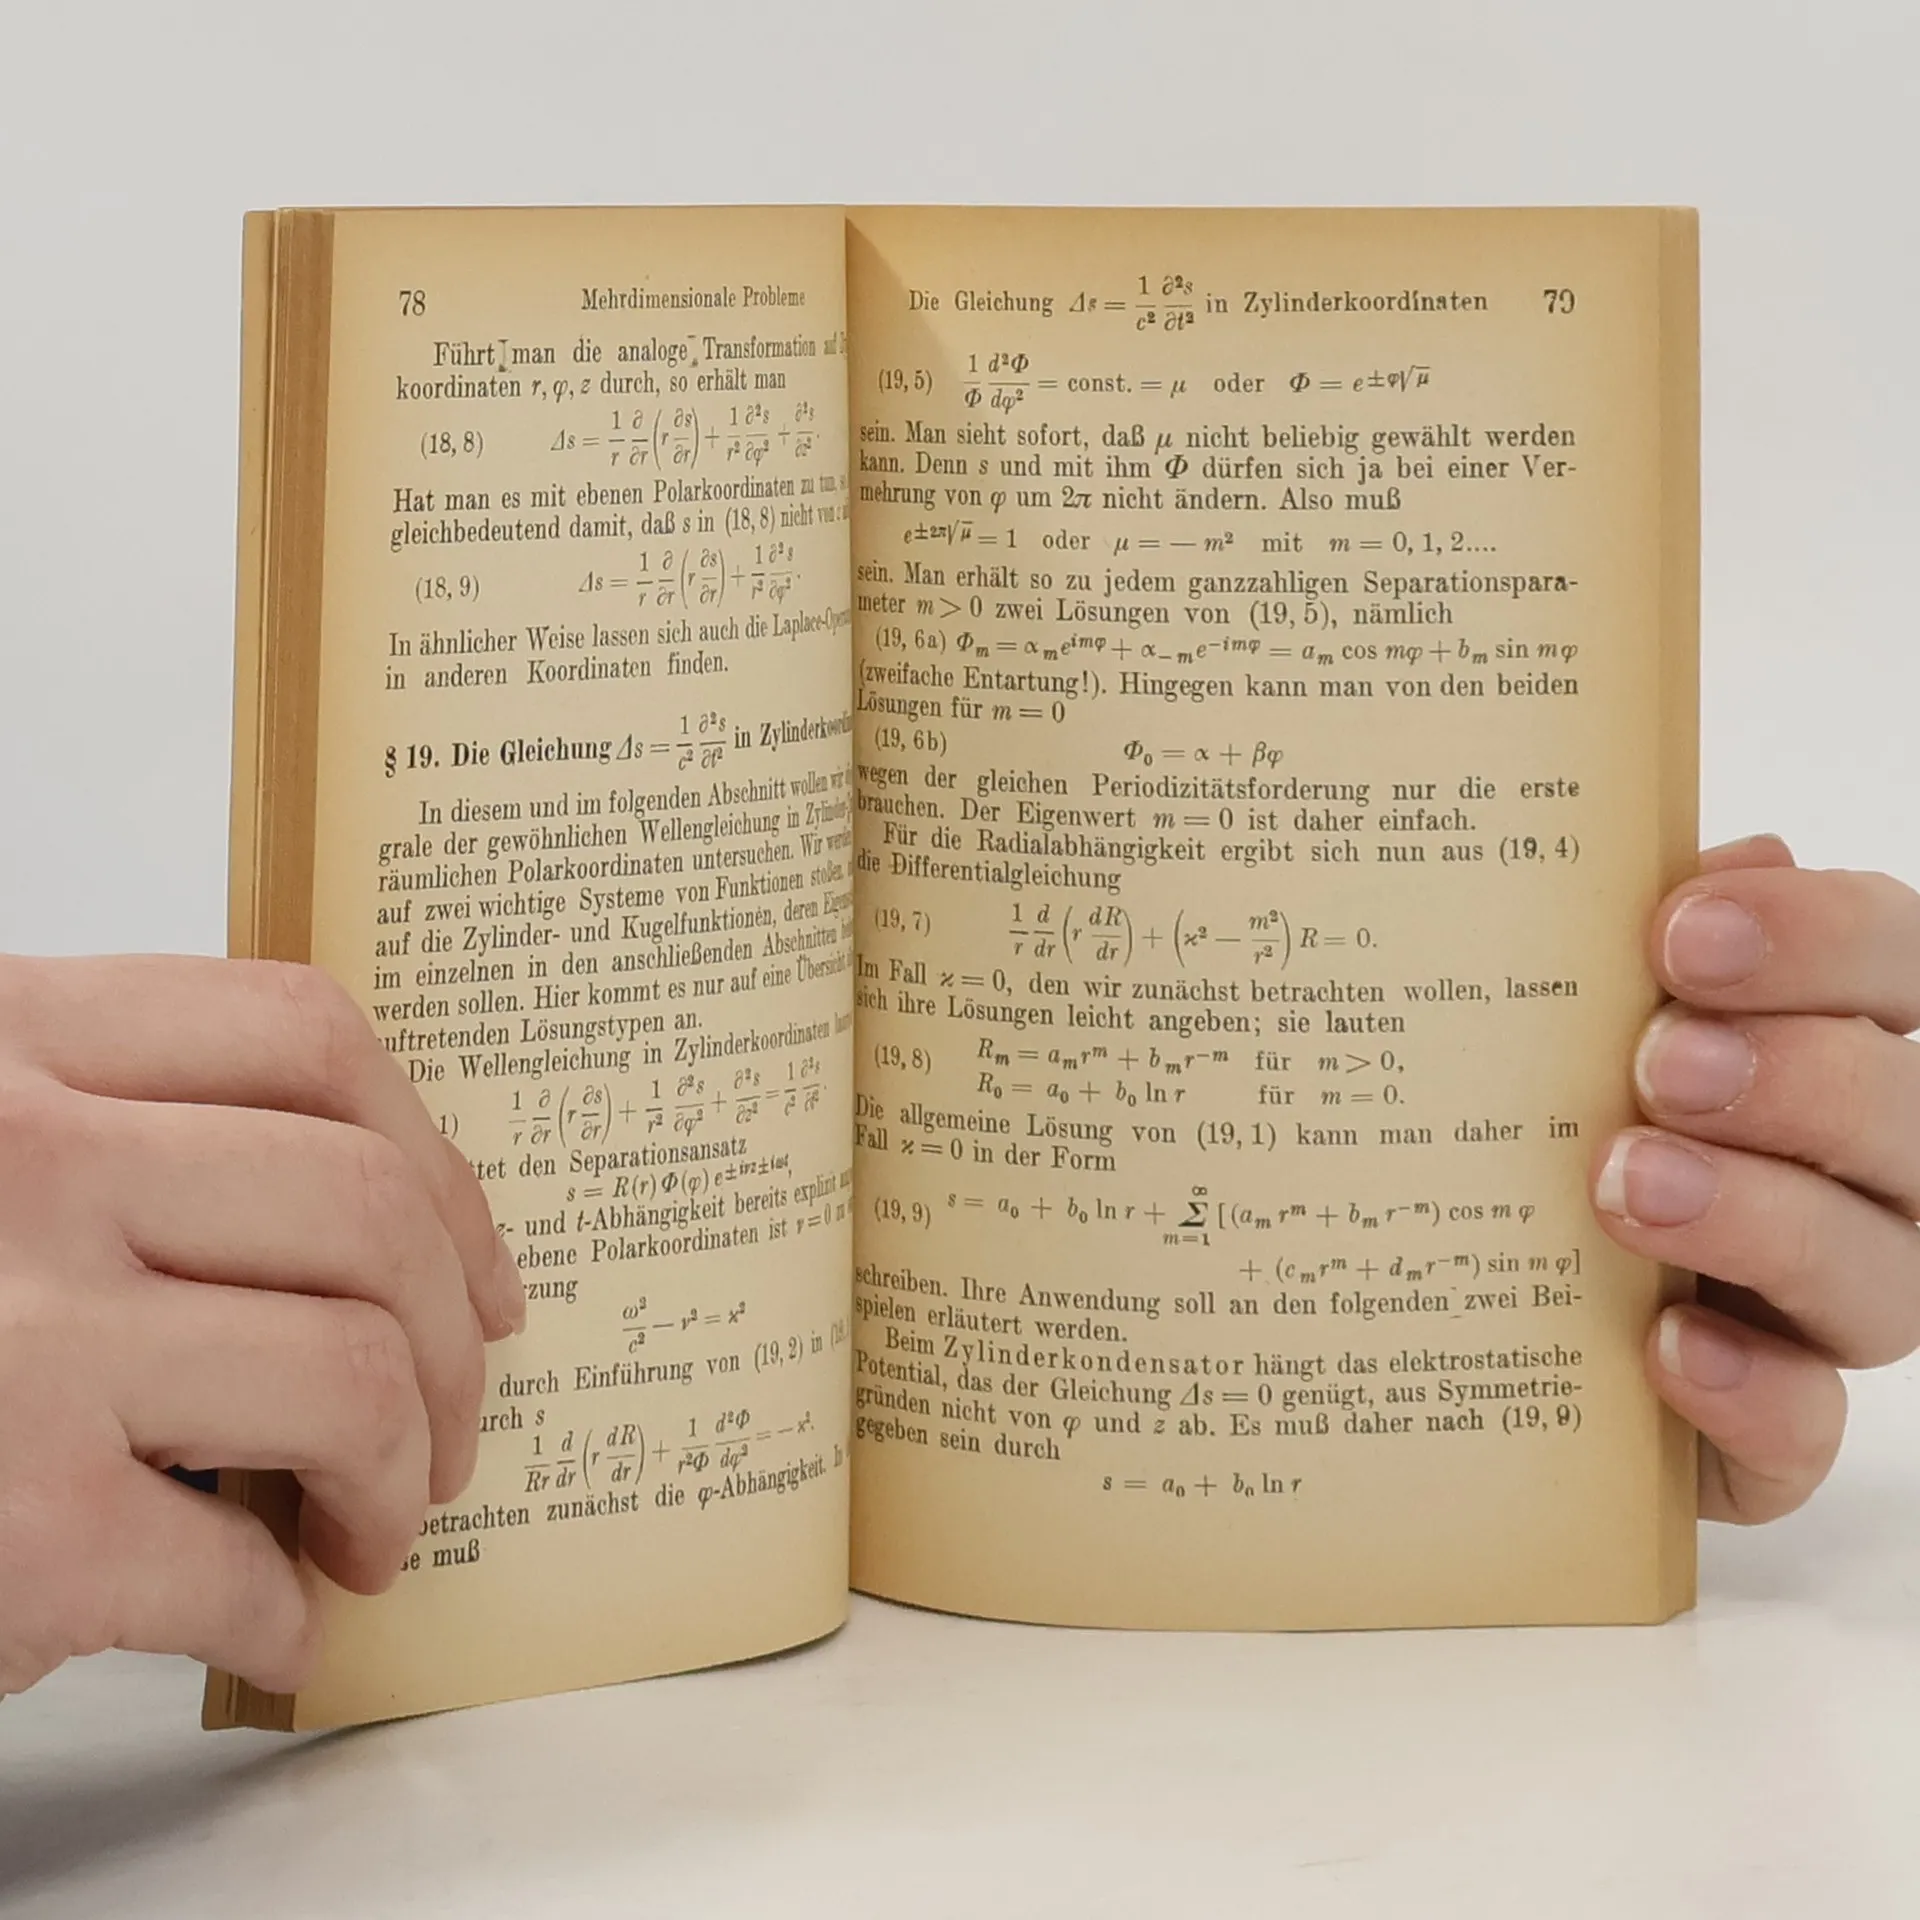 78 Mehrdimensionale Probleme
Führt man die analoge Transformation auf
koordinaten r, φ, z durch, so erhält man
(18, 8) Δs = 1/r ∂/∂r (r ∂s/∂r) + 1/r² ∂²s/∂φ² + ∂²s/∂z².
Hat man es mit ebenen Polarkoordinaten zu tun,
gleichbedeutend damit, daß s in (18, 8) nicht von
(18, 9) Δs = 1/r ∂/∂r (r ∂s/∂r) + 1/r² ∂²s/∂φ².
In ähnlicher Weise lassen sich auch die
in anderen Koordinaten finden.
§ 19. Die Gleichung Δs = 1/c² ∂²s/∂t² in
In diesem und im folgenden Abschnitt wollen wir
grale der gewöhnlichen Wellengleichung in
räumlichen Polarkoordinaten untersuchen. Wir
auf zwei wichtige Systeme von Funktionen
auf die Zylinder- und Kugelfunktionen, deren
im einzelnen in den anschließenden Abschnitten
werden sollen. Hier kommt es nur auf eine Übersicht
auftretenden Lösungstypen an.
Die Wellengleichung in Zylinderkoordinaten
1) 1/r ∂/∂r (r ∂s/∂r) + 1/r² ∂²s/∂φ² + ∂²s/∂z² = 1/c² ∂²s/∂t².
den Separationsansatz
s = R(r) Φ(φ) e^±iνz±iωt,
z- und t-Abhängigkeit bereits explizit
ebene Polarkoordinaten ist ν = 0
zung
ω²/c² − ν² = ϰ²
durch Einführung von (19, 2) in
durch s
1/Rr d/dr (r dR/dr) + 1/r²Φ d²Φ/dφ² = − ϰ².
betrachten zunächst die φ-Abhängigkeit.
muß
Die Gleichung Δs = 1/c² ∂²s/∂t² in Zylinderkoordinaten 79
(19, 5) 1/Φ d²Φ/dφ² = const. = μ oder Φ = e^±φ√μ
sein. Man sieht sofort, daß μ nicht beliebig gewählt werden
kann. Denn s und mit ihm Φ dürfen sich ja bei einer Ver-
mehrung von φ um 2π nicht ändern. Also muß
e^±2π√μ = 1 oder μ = − m² mit m = 0, 1, 2....
sein. Man erhält so zu jedem ganzzahligen Separationspara-
meter m > 0 zwei Lösungen von (19, 5), nämlich
(19, 6a) Φₘ = αₘe^imφ + α₋ₘe^−imφ = aₘ cos mφ + bₘ sin mφ
(zweifache Entartung!). Hingegen kann man von den beiden
Lösungen für m = 0
(19, 6b) Φ₀ = α + βφ
wegen der gleichen Periodizitätsforderung nur die erste
brauchen. Der Eigenwert m = 0 ist daher einfach.
Für die Radialabhängigkeit ergibt sich nun aus (19, 4)
die Differentialgleichung
(19, 7) 1/r d/dr (r dR/dr) + (ϰ² − m²/r²) R = 0.
Im Fall ϰ = 0, den wir zunächst betrachten wollen, lassen
sich ihre Lösungen leicht angeben; sie lauten
(19, 8) Rₘ = aₘrᵐ + bₘr⁻ᵐ für m > 0,
R₀ = a₀ + b₀ ln r für m = 0.
Die allgemeine Lösung von (19, 1) kann man daher im
Fall ϰ = 0 in der Form
(19, 9) s = a₀ + b₀ ln r + ∑_{m=1}^∞ [(aₘ rᵐ + bₘ r⁻ᵐ) cos m φ
+ (cₘrᵐ + dₘr⁻ᵐ) sin m φ]
schreiben. Ihre Anwendung soll an den folgenden zwei Bei-
spielen erläutert werden.
Beim Zylinderkondensator hängt das elektrostatische
Potential, das der Gleichung Δs = 0 genügt, aus Symmetrie-
gründen nicht von φ und z ab. Es muß daher nach (19, 9)
gegeben sein durch
s = a₀ + b₀ ln r